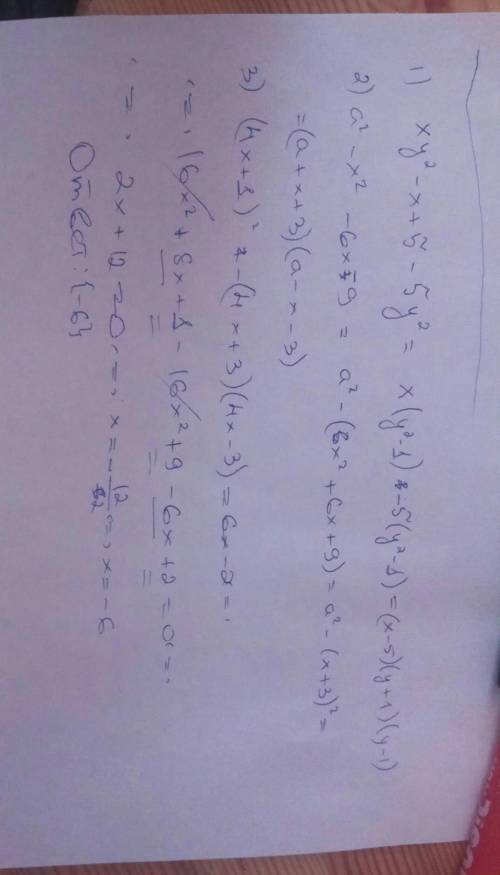 1) xy² - x + 5 - 5y² = x(y²-1) - 5(y²-1) = (x-5)(y+1)(y-1)
2) a² - x² - 6x - 9 = a² - (x² + 6x + 9) = a² - (x+3)² =
= (a+x+3)(a-x-3)
3) (4x+1)² - (4x+3)(4x-3) = 6x - 2 <=>
<=> 16x² + 8x + 1 - 16x² + 9 - 6x + 2 = 0 <=>
<=> 2x + 12 = 0 <=> x = -12/2 <=> x = -6
Ответ: {-6}